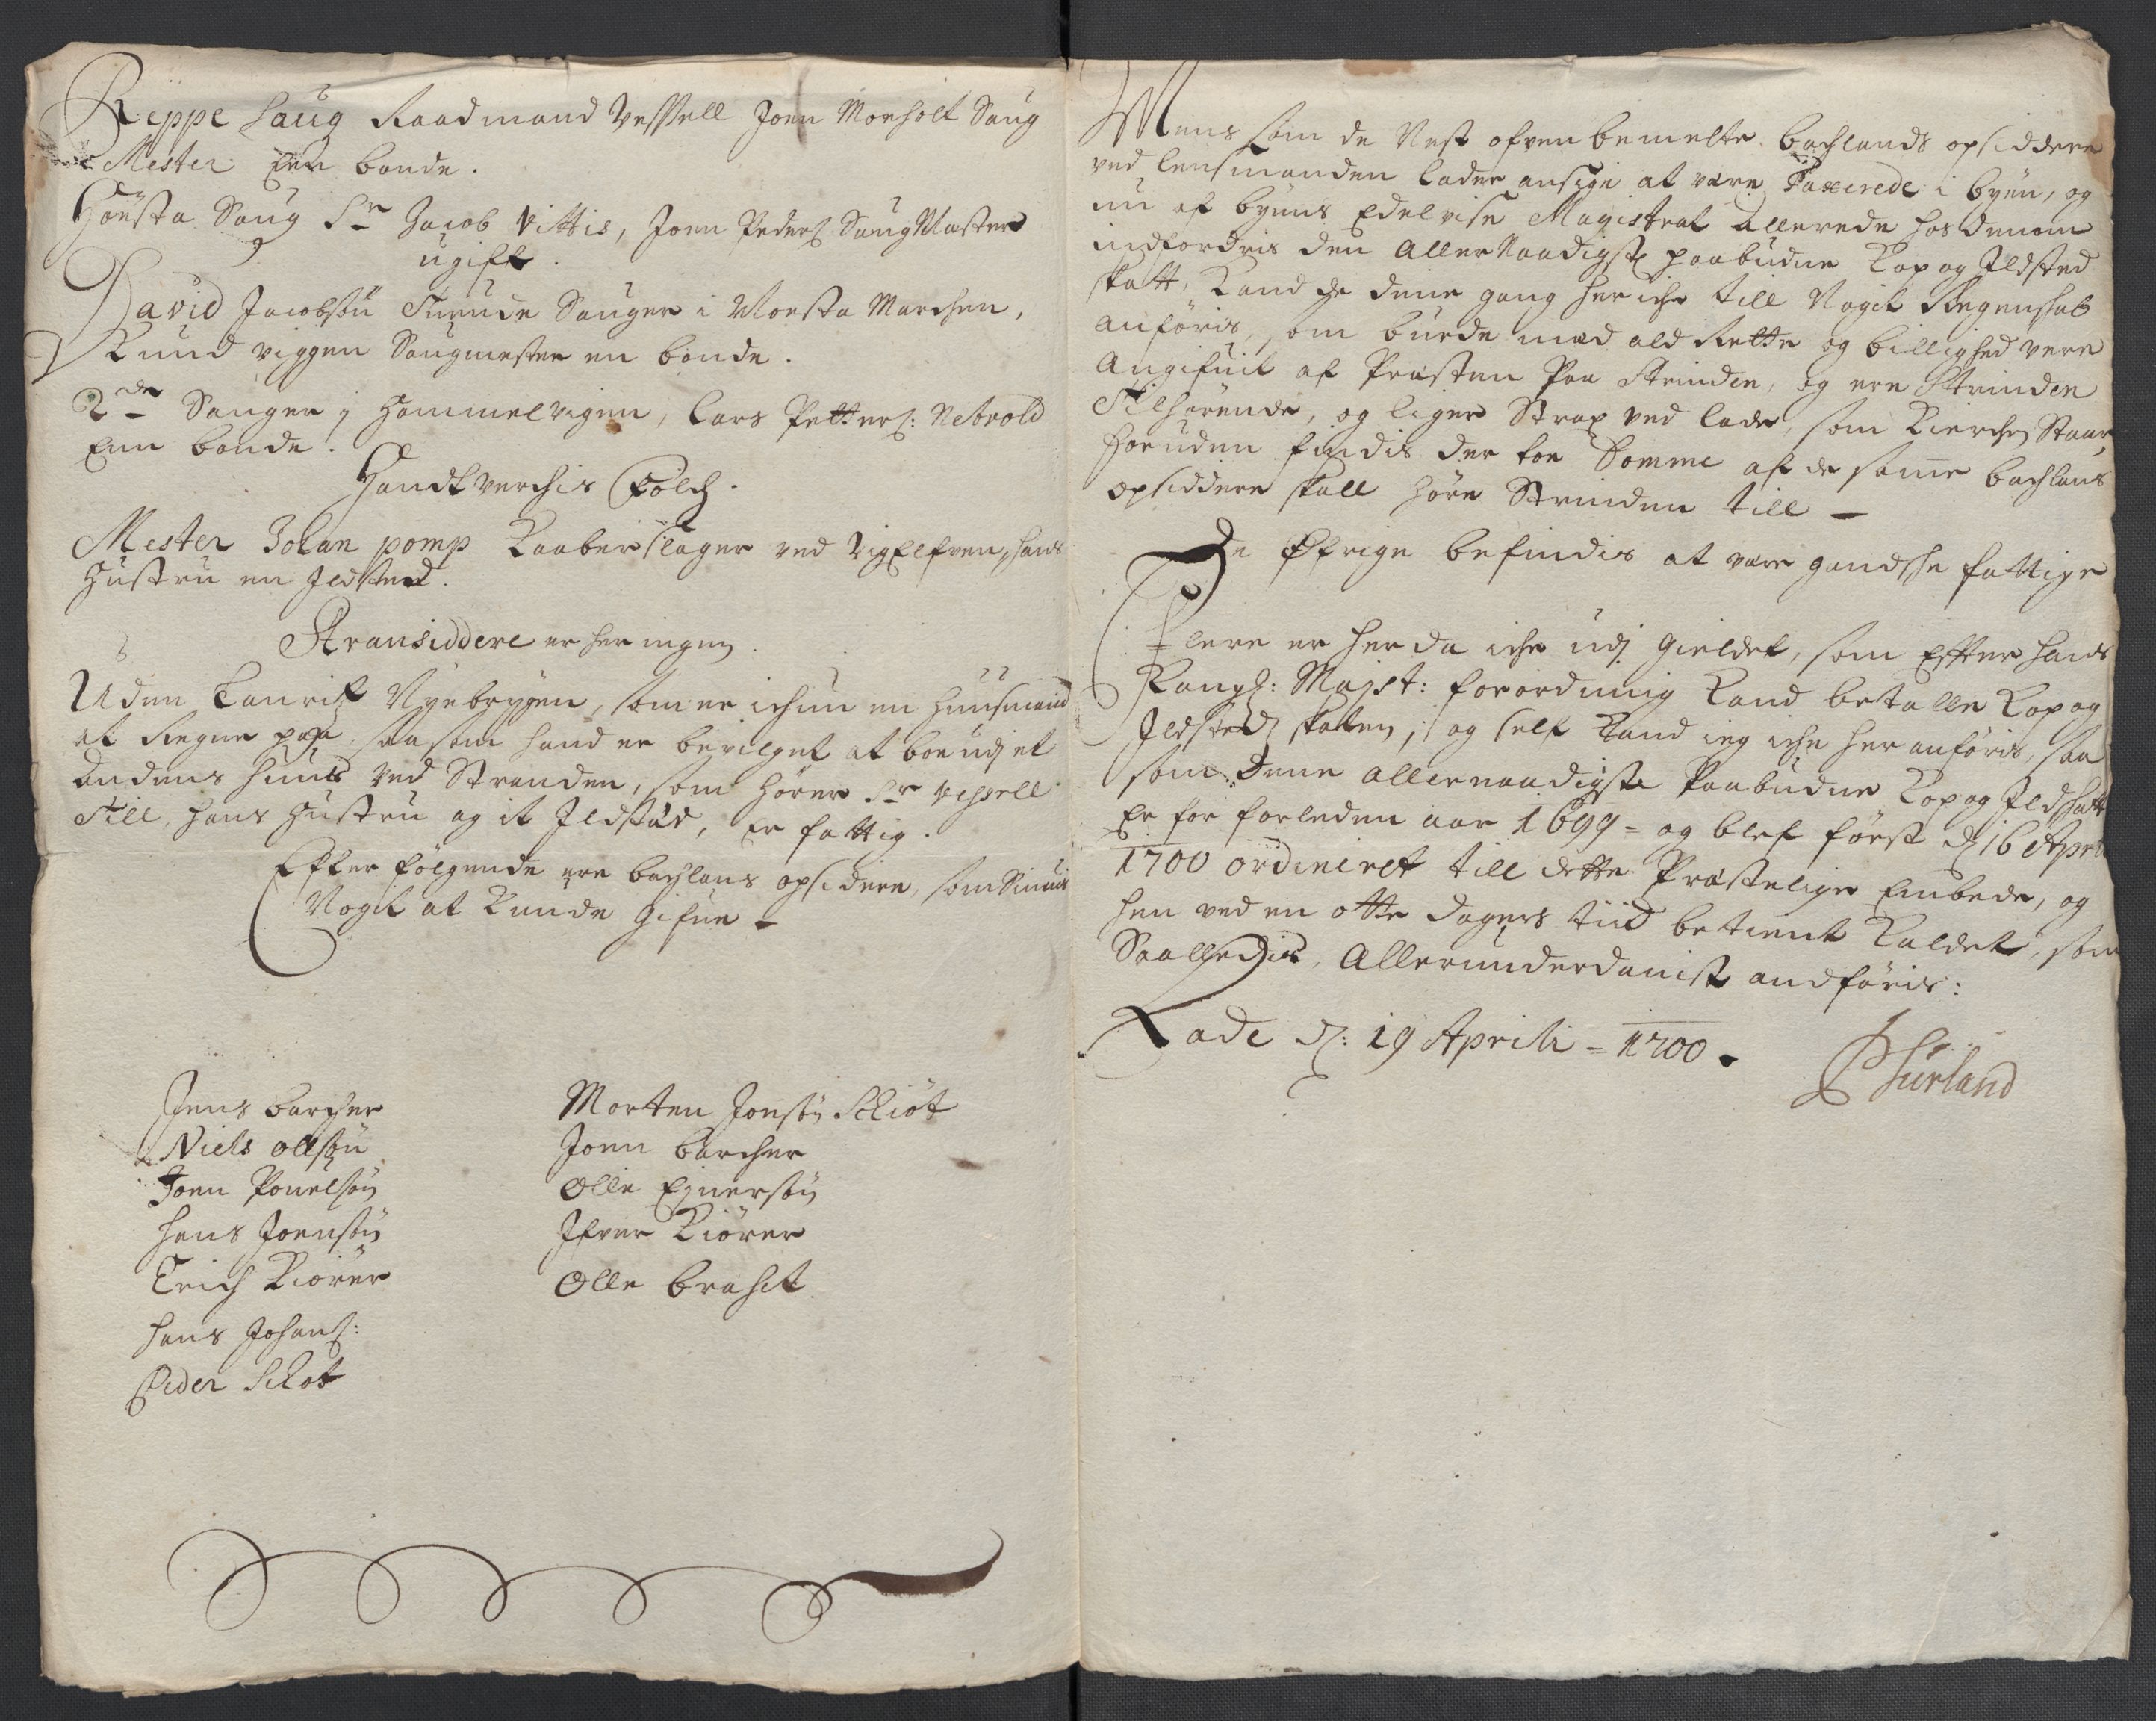 Reppe Saug Raadmand Vessell Joen Monholt Saug
Mester Een bonde.
Hönsta Saug Sr Jacob Vittis, Joen Peders: Saug Mester
ugift.
David Jacobsøn Saugen i Monsta Marchen,
Knud Viggen Saugmester en bonde.
2de Sauger i Hommelvigen, Lars Petters: Nebvold
Enn bonde.
Handtverchis Folch.
Mester Johan pomp Kaaberslager ved VigElfven, hans
Hustru en Ildsted.
Stransiddere er her ingen.
Uden Lauritz Nyebryggen, som er ichun en Huusmand
at Regne paa, saa som hand er bevilget at boe udj et
Andens Huus ved Stranden, som hörer Sr Vessell
Till, hans Hustru og it Ildsted, Er fattig.
Efter fölgende ere bachlans opsidere, som Sinnis
Noget at Kunde Gifue -
Jens barcher
Niels olssøn
Joen Pouelsøn
Hans Joensøn
Erich Kiörer
Hans Johans:
Peder Schot
Morten Jonsøn Schiöt
Joen barcher
Olle Ejnersøn
Ifver Kiörer
Olle brahet
Mens som de Nest ofvenbemelte bachlands opsiddere
ved lensmanden lader ansige at være Taxerede i byen, og
nu af byens Edelvise Magistrat allerede hos dennem
indfordris den AllerNaadigste paabudne Kop og Ildsted
skatt, Kand de denne gang her iche till Noget Regenskab
anföris, som burde med ald Rette og billighed vere
Angifuit af Præsten Paa Strinden, og ere Strinden
Tilhörende, og liger Strax ved lade, som Kierchen Staar,
foruden findis der toe Domme at de samme bachlans
opsiddere skall höre Strinden till -
De Öfrige befindis at være gandsche fattige
Flere er her da iche udj Gieldet, som Efter hans
Kongl: Majst: forordning Kand betalle Kop og
Ildsted skatten, og self Kand ieg iche her anföris, saa
som denne allernaadigste Paabudne Kop og Ildskatt
Er for forleden aar 1699 - og blef först d 16 April
1700 ordineret till dette Præstelige Embede, og
hen ved en otte dagers tiid betient Kaldet, som
Saalledis, Allerunderdanist andföris:
Lade d: 19 Aprili - 1700.
Hurland